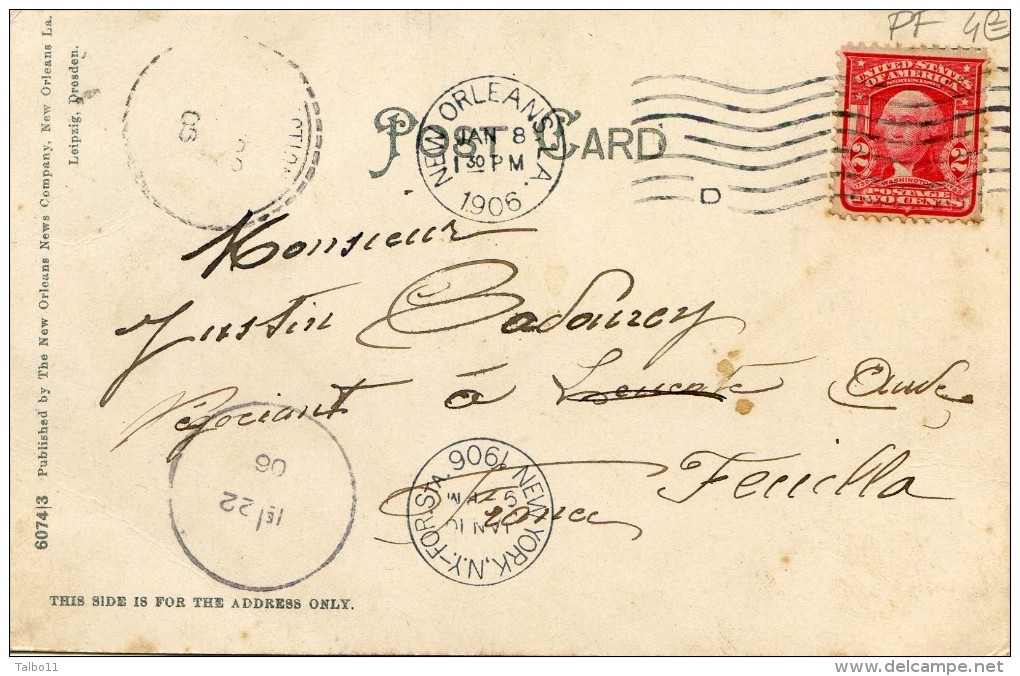 PF 4E
6074|3 Published by The New Orleans News Company, New Orleans La.
Leipzig, Dresden.
06
POST CARD
NEW ORLEANS, LA.
JAN 8
1 30 PM
1906
D
UNITED STATES
OF AMERICA
2 2
WASHINGTON
POSTAGE
TWO CENTS
Monsieur
Justin Cadourcy
Négociant à Leucate Aude
Feuilla
France
1E/22
06
NEW YORK, N.Y.-FOR. STA. 1906
JAN 10
THIS SIDE IS FOR THE ADDRESS ONLY.
Talbo11
delcampe.net